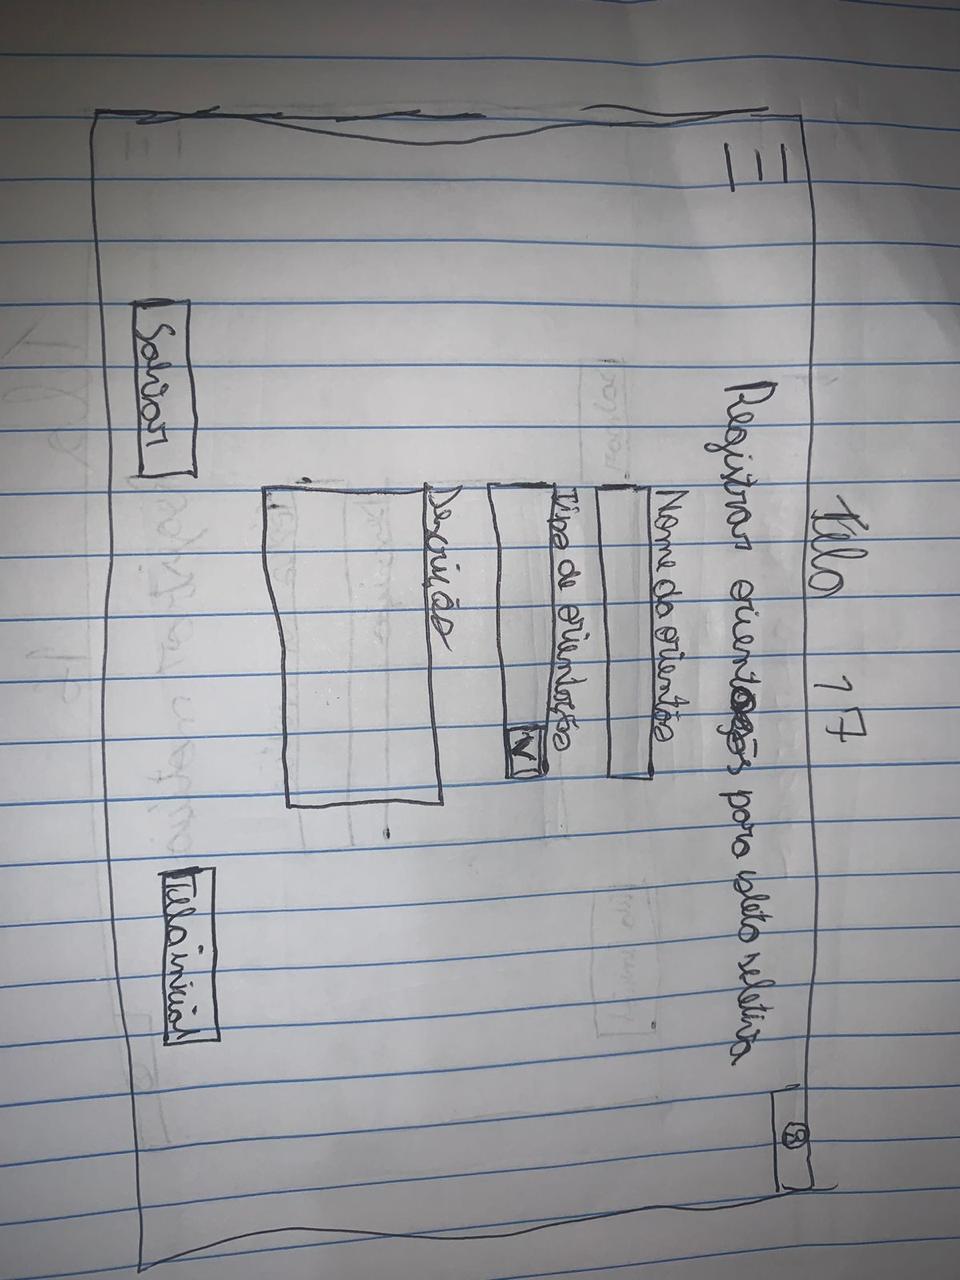 Tela 17
Registrar orientações para coleta seletiva
Nome da orientação
Tipo de orientação
V
Descrição
Salvar
Tela inicial